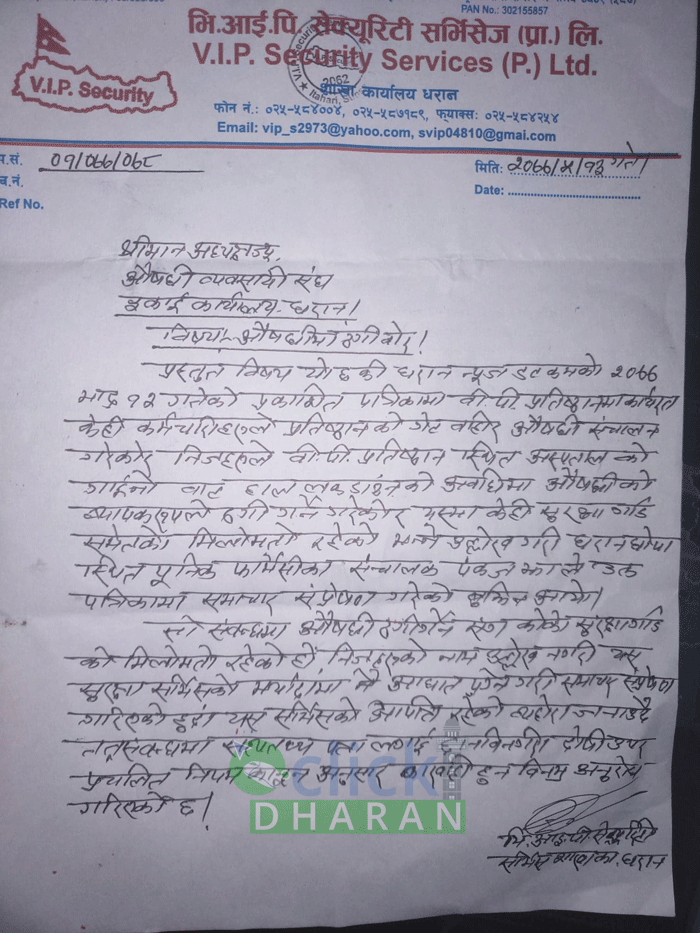 PAN No.: 302155857
भि.आई.पि. सेक्यूरिटी सर्भिसेज (प्रा.) लि.
V.I.P. Security Services (P.) Ltd.
V.I.P. Security
2062
शाखा कार्यालय धरान
फोन नं.: ०२५-५८४००४, ०२५-५८७१८९, फ्याक्स: ०२५-५८४२५४
Email: vip_s2973@yahoo.com, svip04810@gmai.com
प.सं. 09/066/067
च.नं.
Ref No.
मिति: 2066/५/१३ गते।
Date:
श्रीमान अध्यक्षज्यू,
औषधी व्यवसायी संघ
इकाई कार्यालय धरान।
विषय:- औषधीमा ठगी बारे।
प्रस्तुत विषय यो छ की धरान न्यूज डटकमको 2066
भाद्र १२ गतेको प्रकाशित पत्रिकामा वी.पी. प्रतिष्ठानमा कार्यरत
केही कर्मचारीहरुले प्रतिष्ठानको गेट बाहिर औषधी संचालन
गरेको र निजहरुले वी.पी. प्रतिष्ठान स्थित अस्पताल को
बाट हाल लकडाउनको अवधिमा औषधीको
ठगी गर्ने गरेको र यसमा केही सुरक्षा गार्ड
समेतको मिलोमतो रहेको भन्ने उल्लेख गरी धरान घोपा
स्थित फार्मेसीका संचालक पंकज झा ले उक्त
पत्रिकामा समाचार संप्रेषण गरेको बुझिन आयो।
सो सम्बन्धमा औषधी संग को को सुरक्षा गार्ड
को मिलोमतो रहेको हो निजहरुको नाम उल्लेख नगरी यस
सुरक्षा सर्भिसको मर्यादामा नै आघात पुग्ने गरी समाचार संप्रेषण
गरिएको हुदा यस सर्भिसको आपत्ति रहेको व्यहोरा जनाउदै
तत् सम्बन्धमा सत्यतथ्य पत्ता लगाई छानविन गरी दोषी उपर
प्रचलित नियम कानून अनुसार कारवाही हुन विनम्र अनुरोध
गरिएको छ।
click
DHARAN
भि.आई.पी. सेक्यूरिटी
सर्भिस शाखा का. धरान